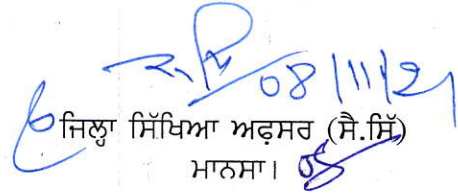 08/11/21
ਜਿਲ੍ਹਾ ਸਿੱਖਿਆ ਅਫ਼ਸਰ (ਸੈ.ਸਿੱ)
ਮਾਨਸਾ।